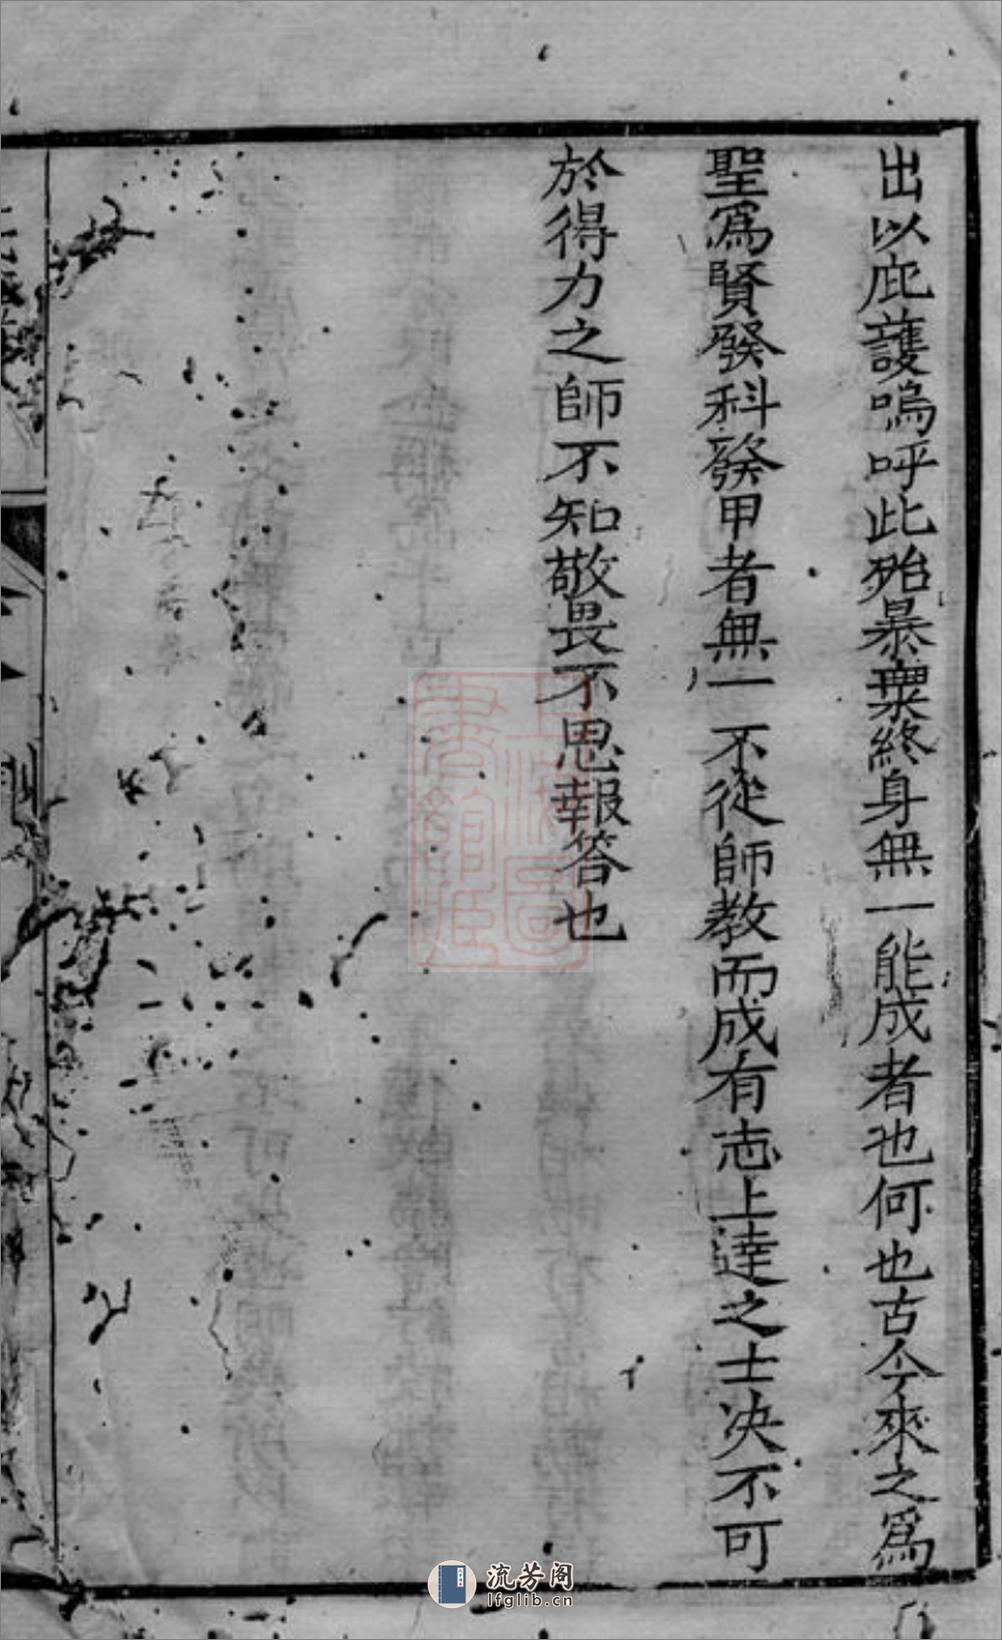 出以庇護嗚呼此殆暴棄終身無一能成者也何也古今來之爲
聖爲賢發科發甲者無一不從師教而成有志上達之士决不可
於得力之師不知敬畏不思報答也
上海圖書館藏
流芳阁
lfglib.cn